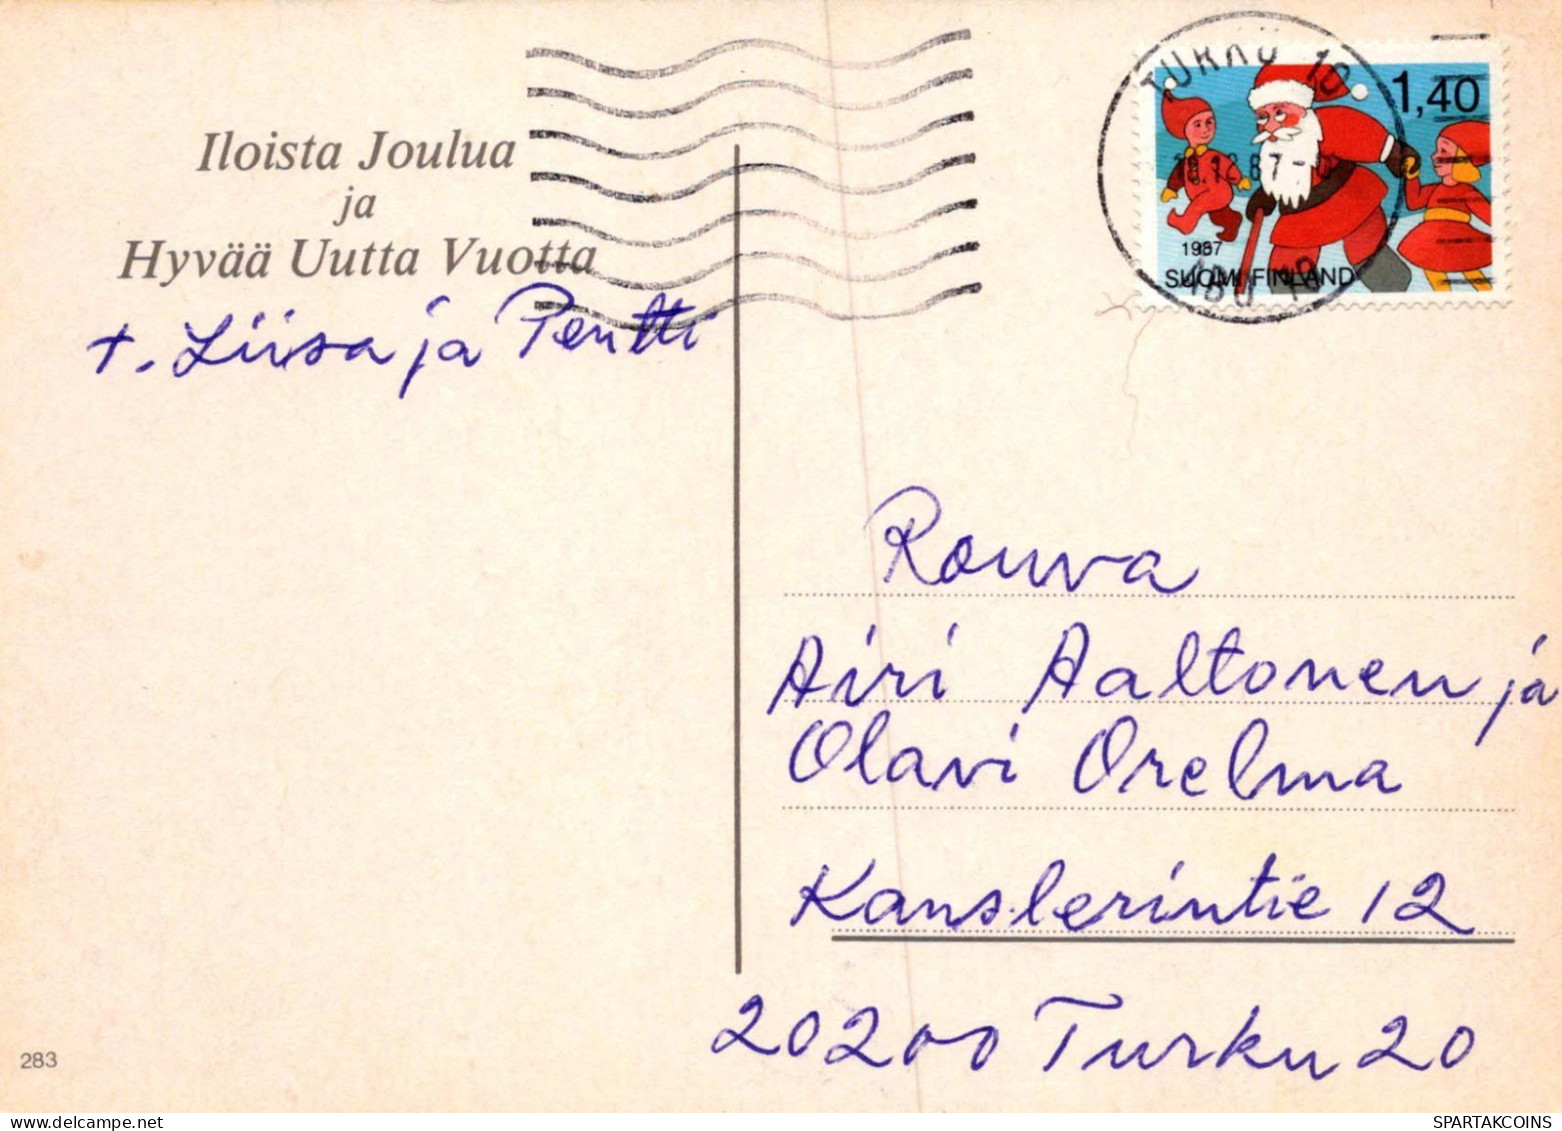 Iloista Joulua
ja
Hyvää Uutta Vuotta
t. Liisa ja Pentti
TURKU 10
1,40
18.12.87
1987
SUOMI FINLAND
ÅBO 10
Rouva
Airi Aaltonen ja
Olavi Orelma
Kanslerintie 12
20200 Turku 20
283
delcampe.net
SPARTAKCOINS